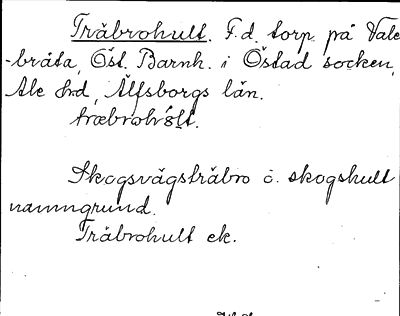 Träbrohult. F.d. torp på Vale
-bråta, Öst. Barnh. i Östad socken,
Ale hd, Älfsborgs län.
träbrohúlt.
Skogsvägsträbro o. skogshult
namngrund.
Träbrohult ek.